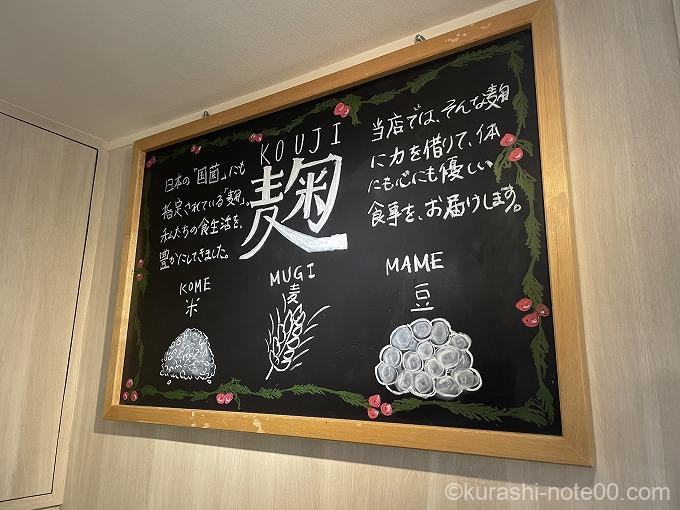 KOUJI
麹
日本の"国菌"にも
指定されている「麹」、
私たちの食生活を、
豊かにしてきました。
当店では、そんな麹
に力を借りて、体
にも心にも優しい
食事を、お届けします。
KOME
米
MUGI
麦
MAME
豆
©kurashi-note00.com